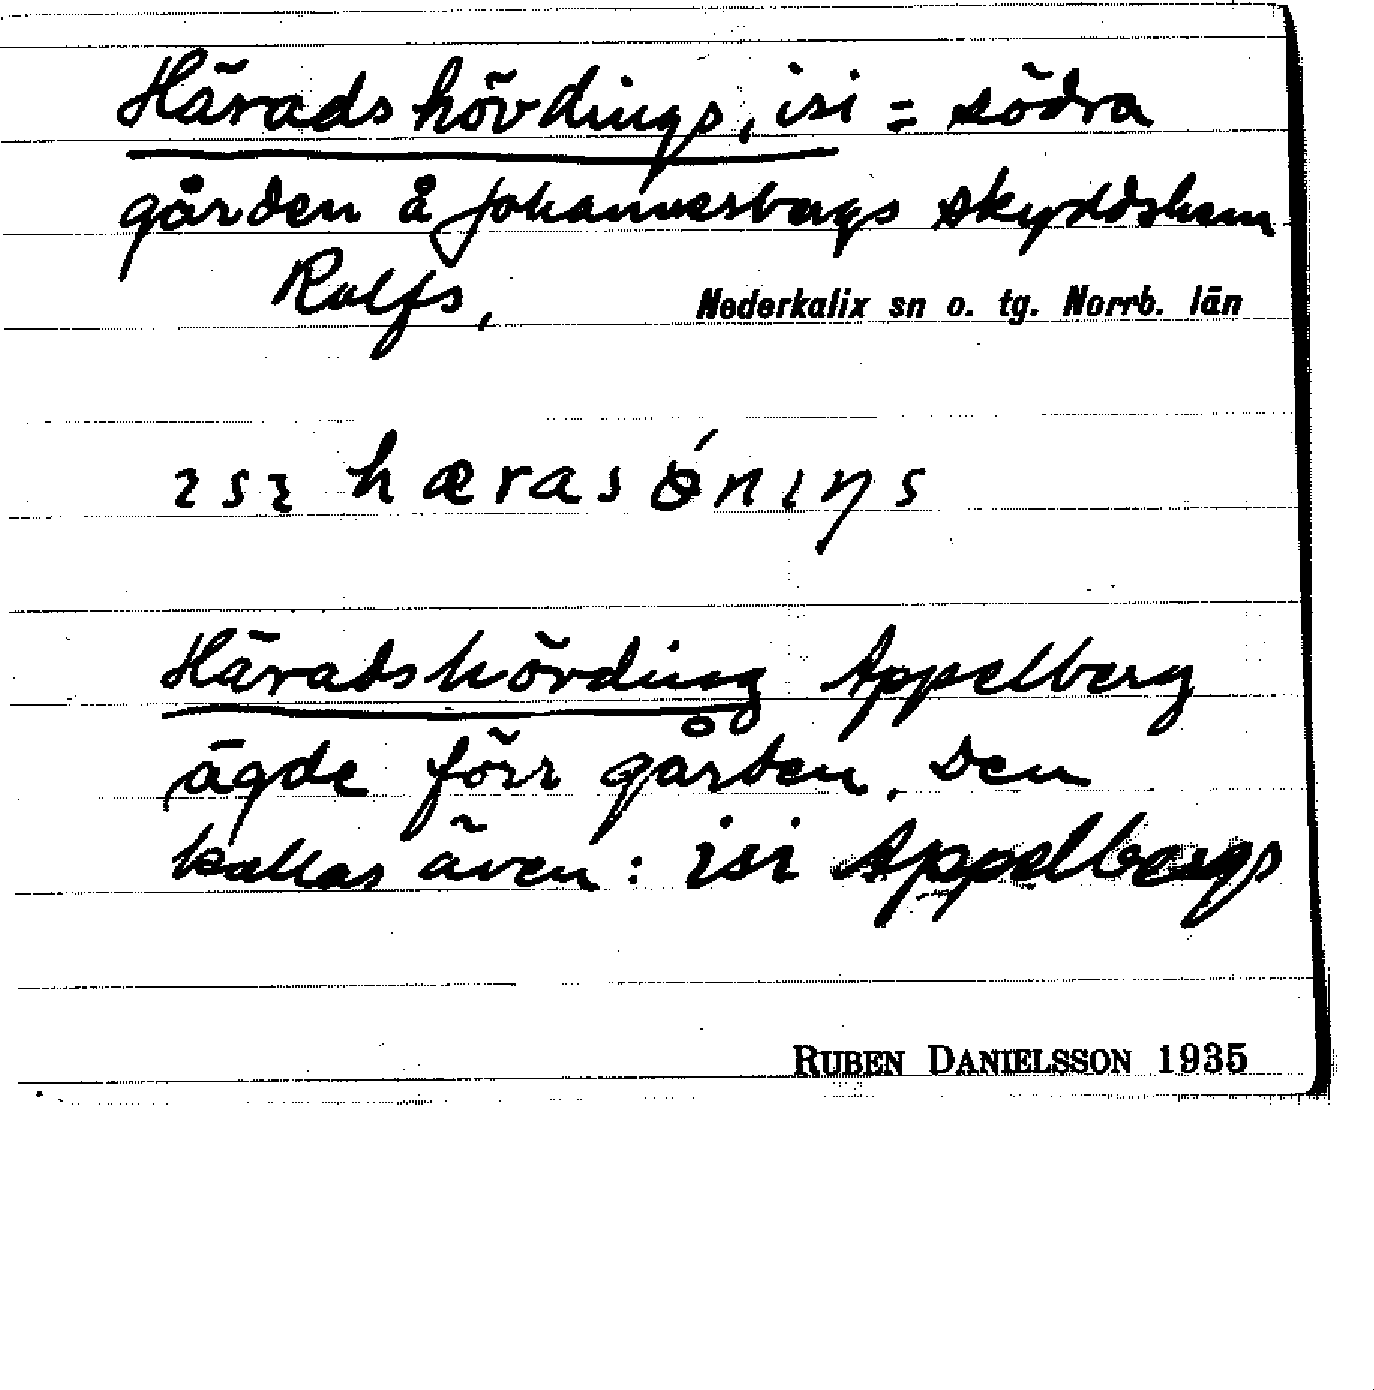 Häradshövdings, isi = södra
gården å Johannesbergs skyddshem
Rolfs, Nederkalix sn o. tg. Norrb. län
ɩsɩ hæras ǿnɩŋs
Häradshövding Appelberg
ägde förr gården. Den
kallas även: isi Appelbergs
RUBEN DANIELSSON 1935